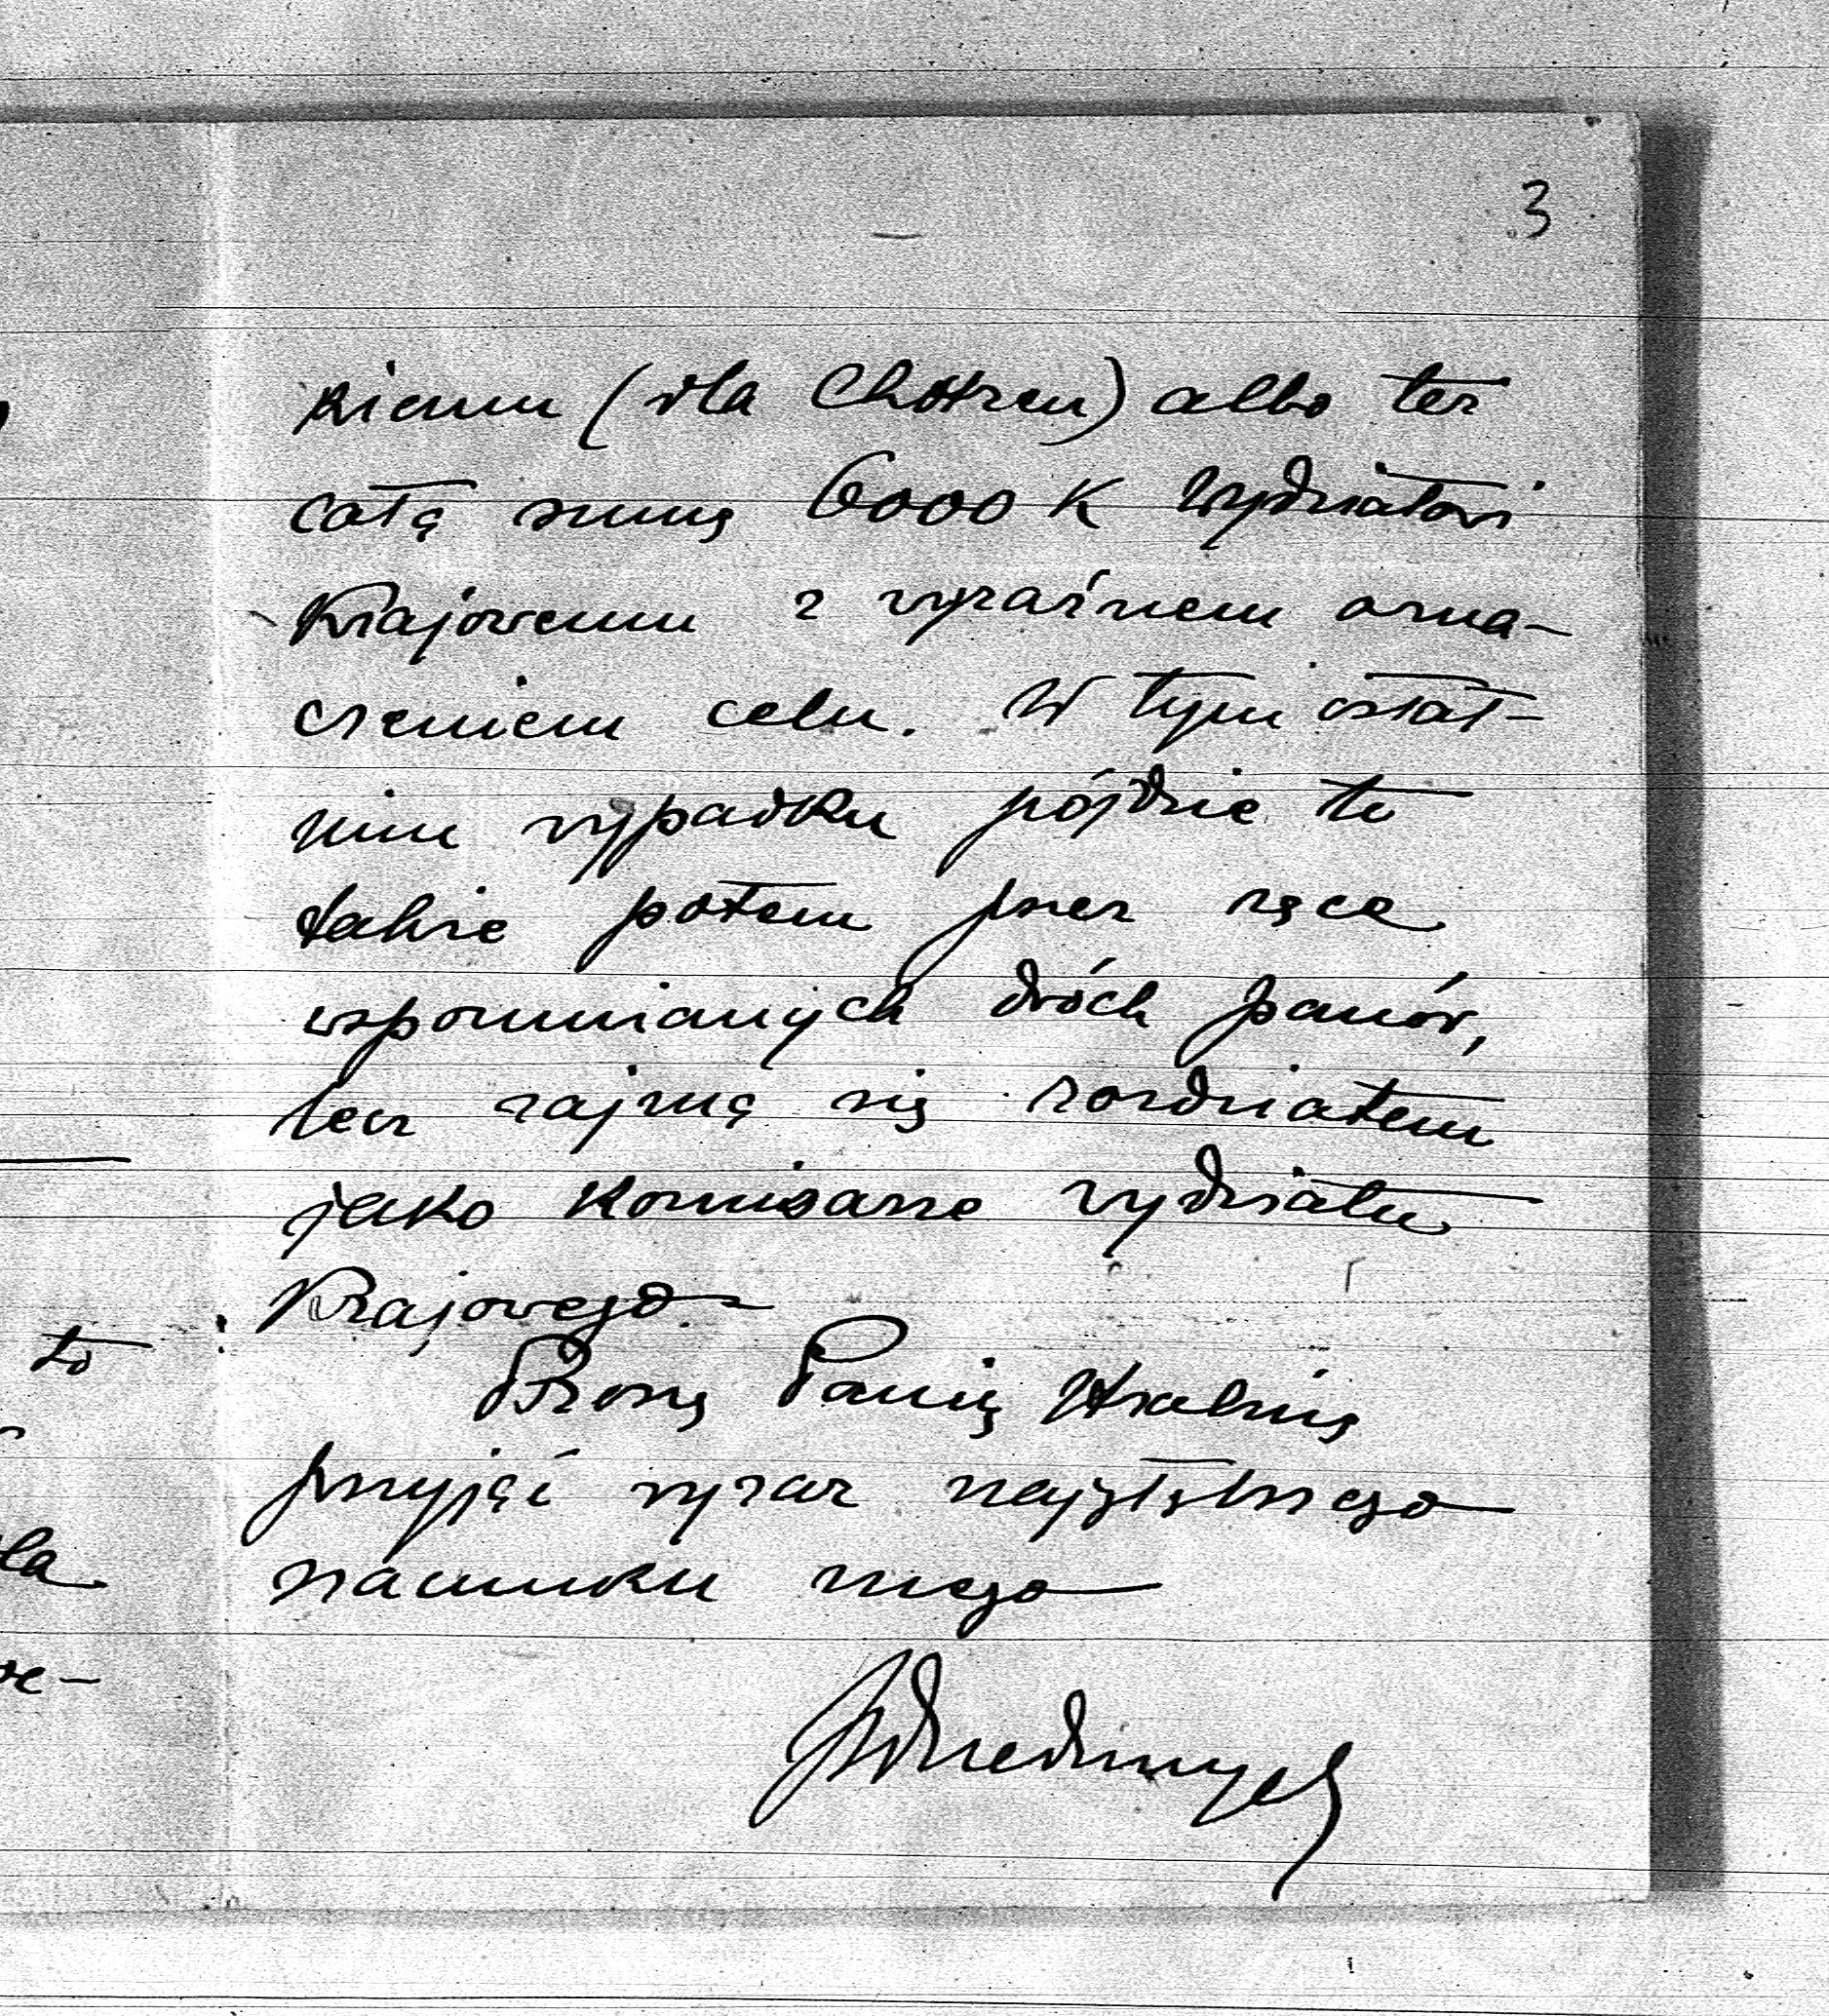 3
kiemu (dla Chotrzeu) albo też
całą sumę 6000 K Wydziałowi
Krajowemu z wyraźnem ozna-
czeniem celu. W tym ostat-
nim wypadku pójdzie to
także potem przez ręce
wspomnianych dwóch panów,
lecz zajmą się rozdziałem
jako komisarze wydziału
Krajowego
Proszę Panią Hrabinę
przyjąć wyraz najgłębszego
szacunku mego
to
la